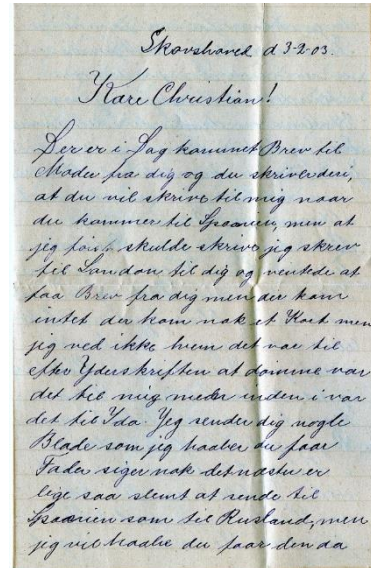 Skovshoved d 3-2-03.
Kære Christian!
Der er i Dag kommet Brev til
Moder fra dig og du skriver deri,
at du vil skrive til mig naar
du kommer til Spanien, men at
jeg først skulde skrive, jeg skrev
til London til dig og ventede at
faa Brev fra dig men der kom
intet der kom nok et Kort men
jeg ved ikke hvem det var til
efter Yderskriften at dømme var
det til mig men inden i var
det til Ida. Jeg sender dig nogle
Blade som jeg haaber du faar
Fader siger nok det næsten er
lige saa slemt at sende til
Spanien som til Rusland, men
jeg vil haabe du faar den da